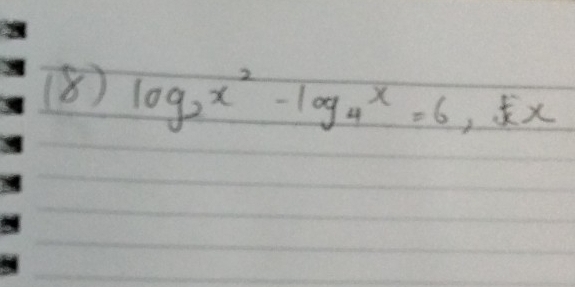 (8) log₂x² - log₄x = 6, 求x